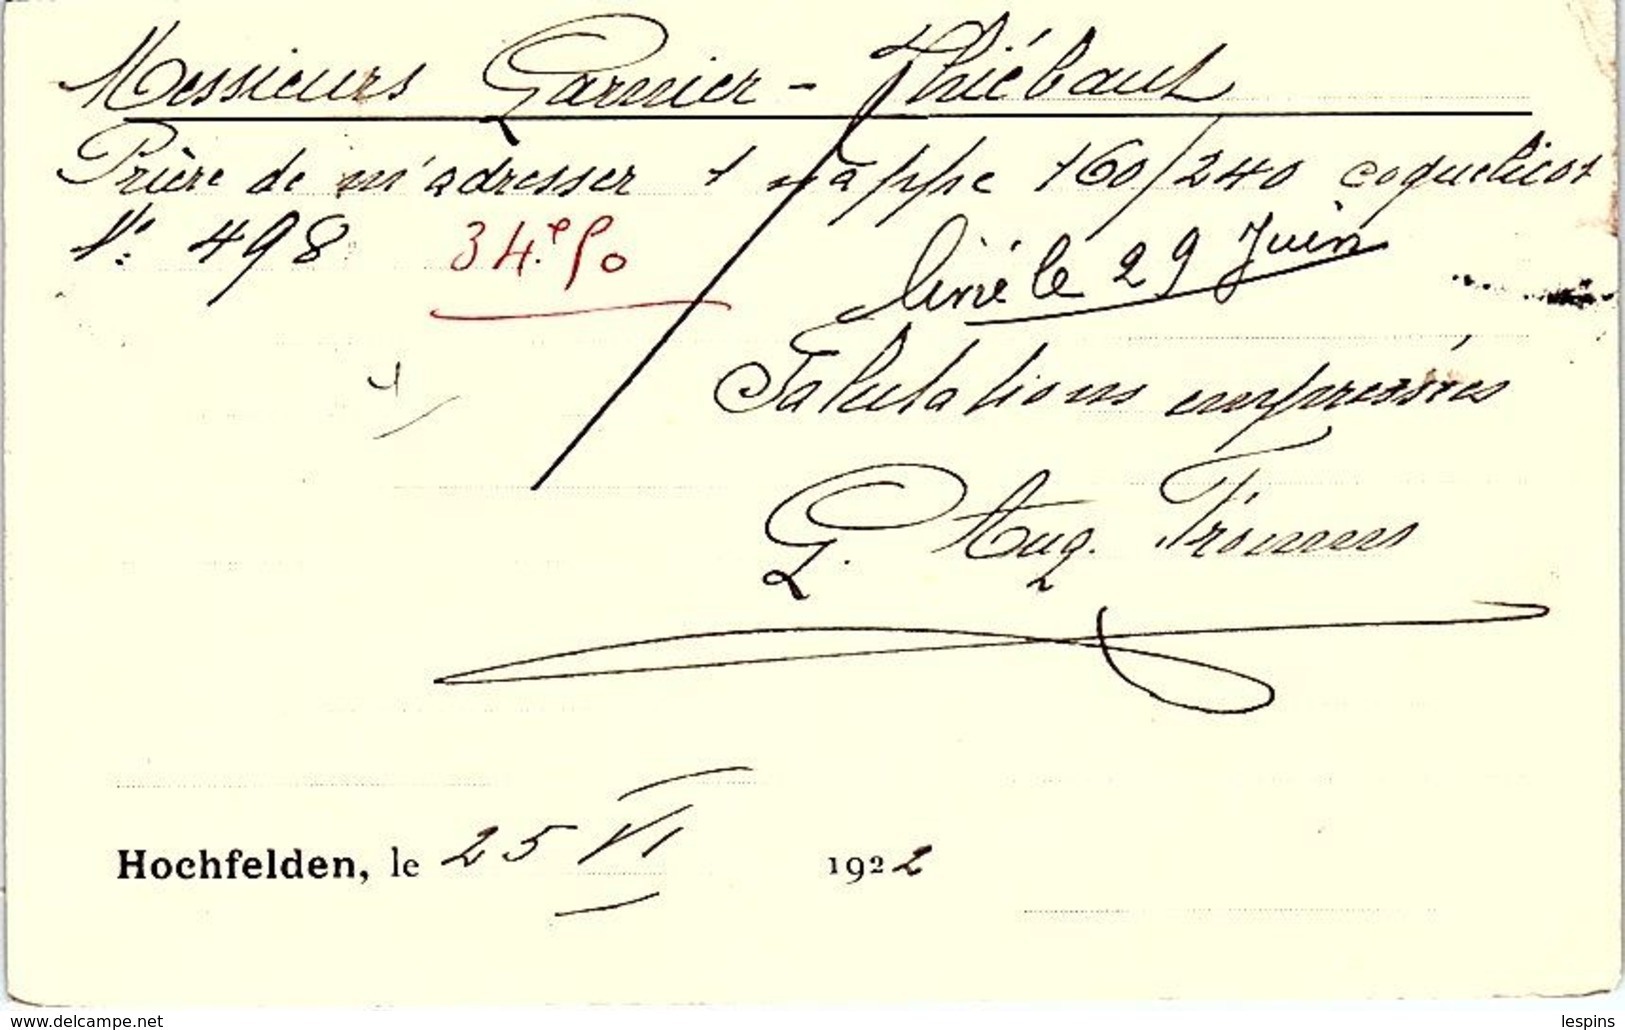 Messieurs Garnier - Thiébaut
Prière de m'adresser 1 nappe 160/240 coquelicot
N°: 498 34.50
livré le 29 Juin
Salutations empressées
G. Aug.
Hochfelden, le 25 VI 1922
www.delcampe.net
lespins